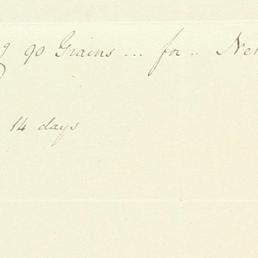 90 Grains ... for ..
14 days